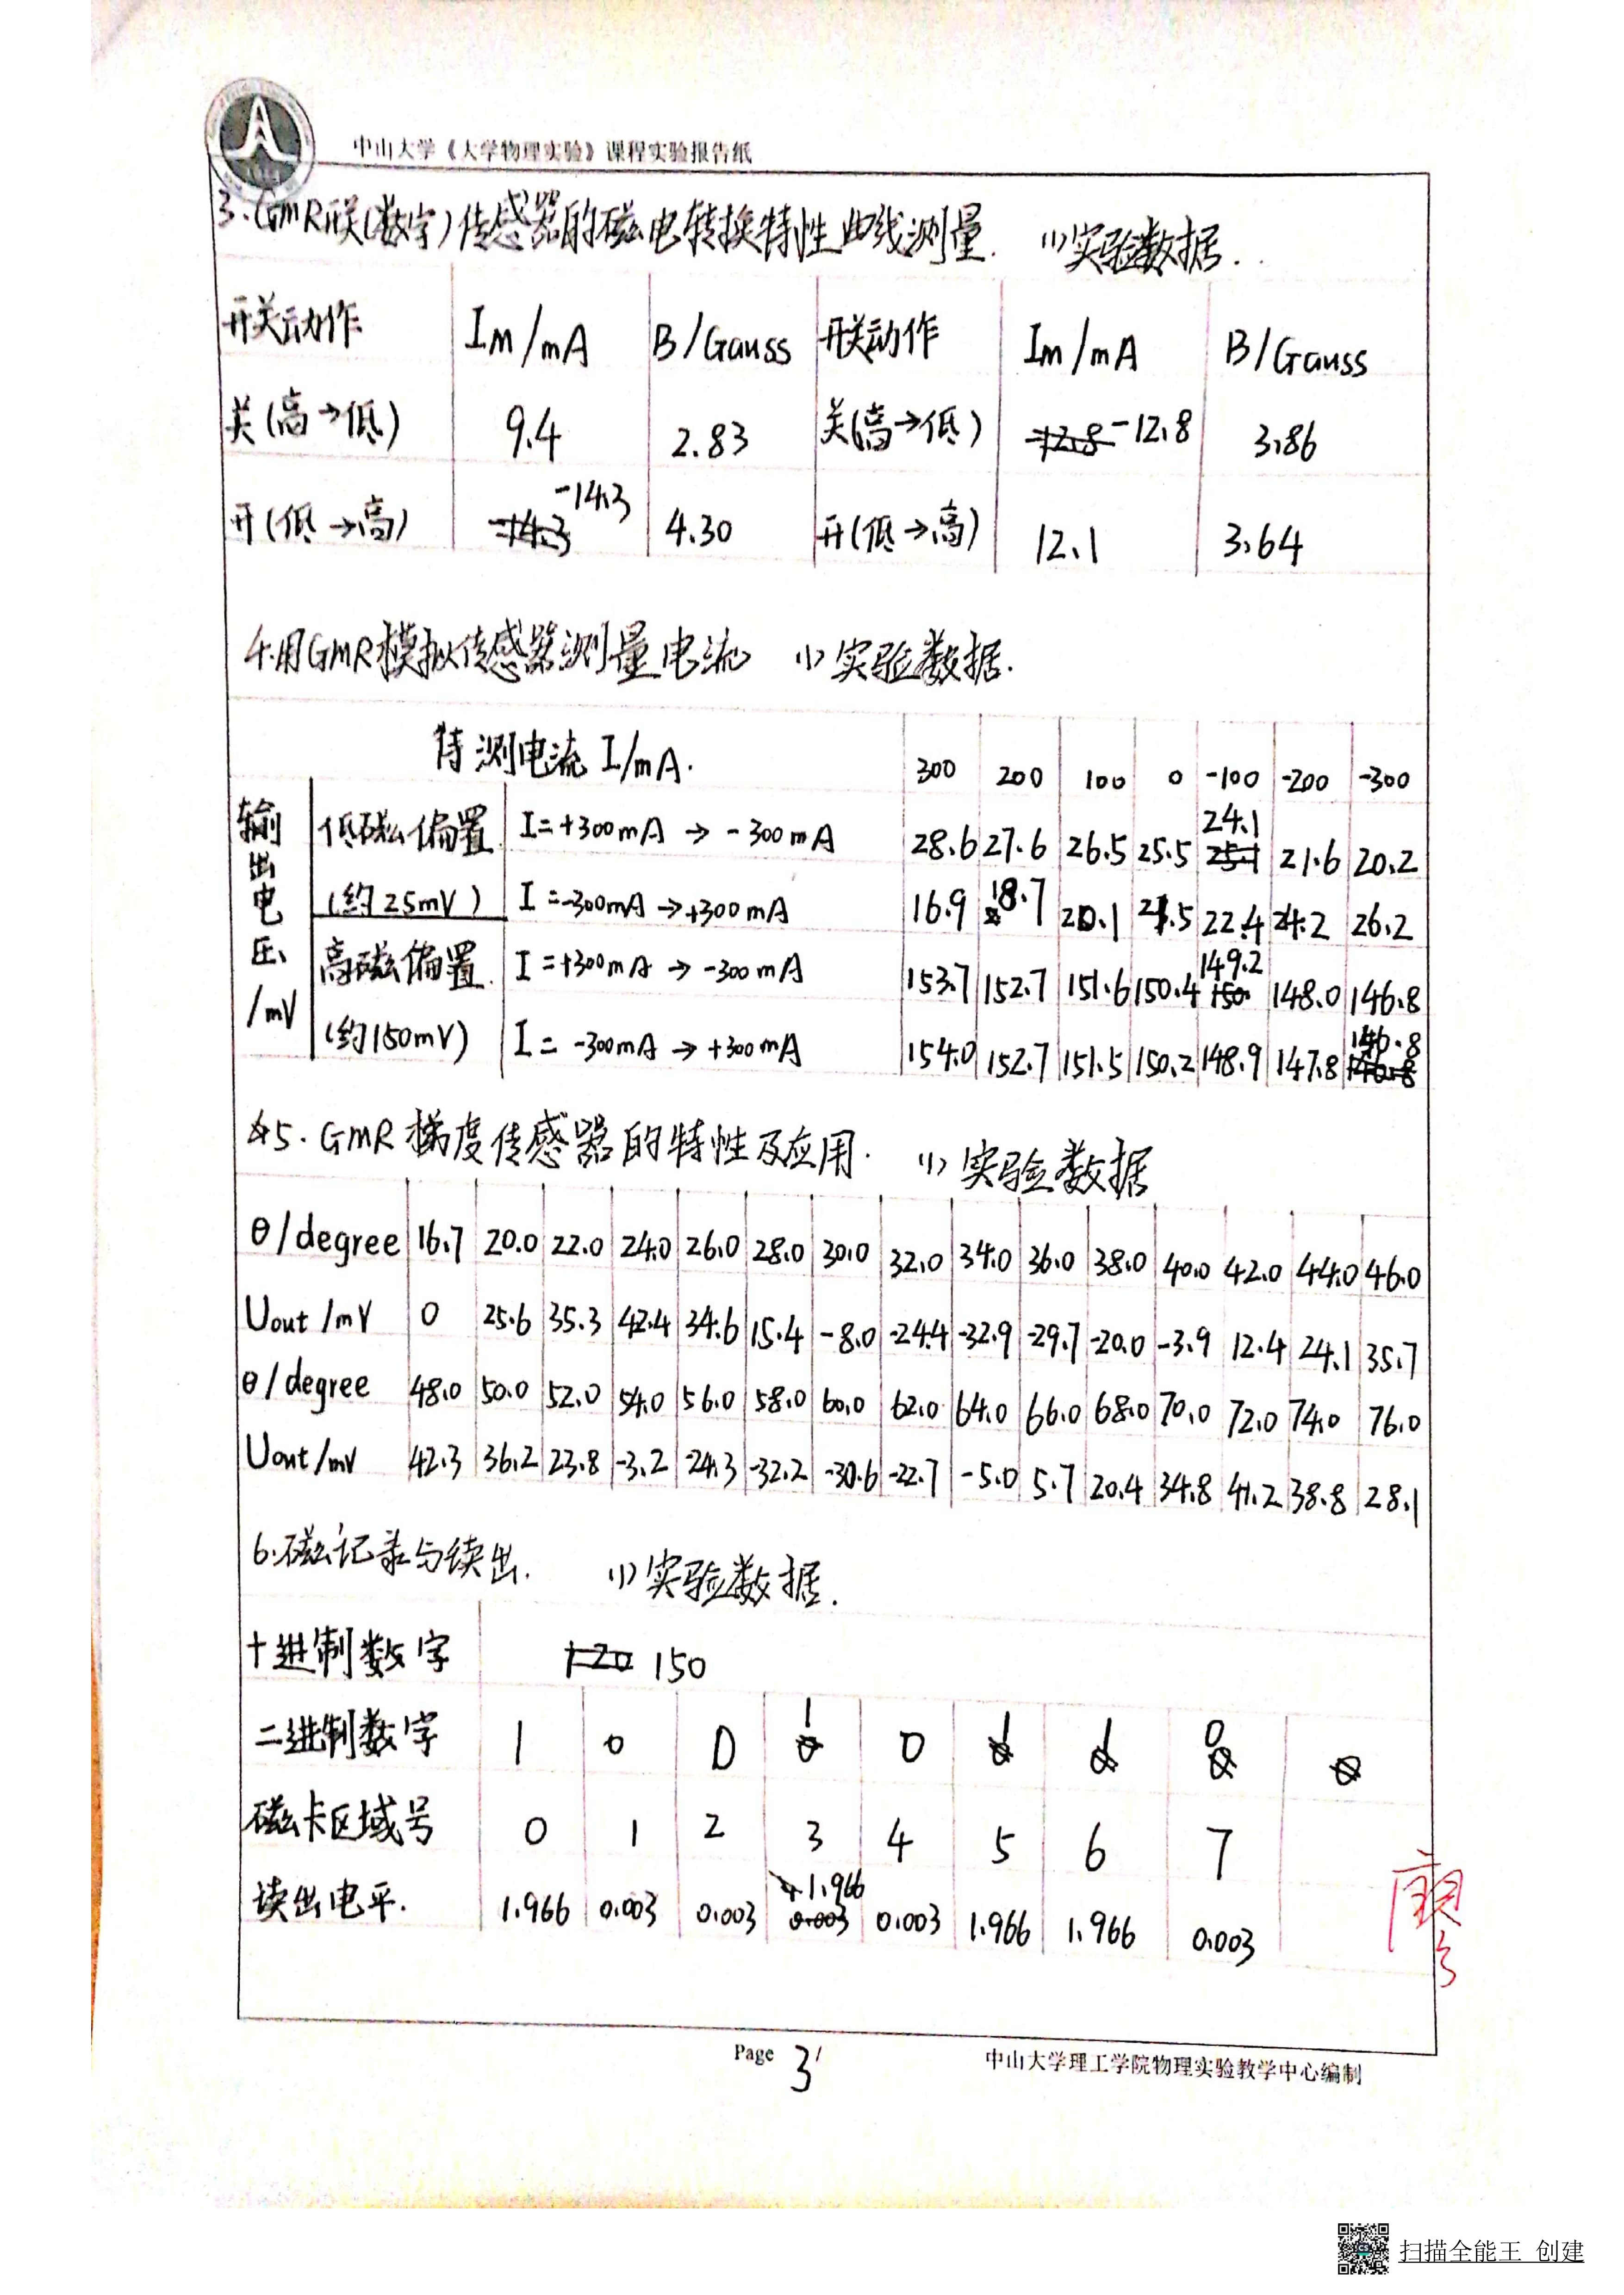 中山大学《大学物理实验》课程实验报告纸
3.GMR开关(数字)传感器的磁电转换特性曲线测量. (1)实验数据.
开关动作 Im/mA B/Gauss 开关动作 Im/mA B/Gauss
关(高→低) 9.4 2.83 关(高→低) -12.8 3.86
开(低→高) -14.3 4.30 开(低→高) 12.1 3.64
4.用GMR模拟传感器测量电流 (1)实验数据.
待测电流 I/mA. 300 200 100 0 -100 -200 -300
输出电压/mV
低磁偏置 I=+300mA → -300mA 28.6 27.6 26.5 25.5 24.1 21.6 20.2
(约25mV) I=-300mA→+300mA 16.9 18.7 20.1 21.5 22.4 24.2 26.2
高磁偏置. I=+300mA → -300mA 153.7 152.7 151.6 150.4 149.2 148.0 146.8
(约150mV) I= -300mA → +300mA 154.0 152.7 151.5 150.2 148.9 147.8 146.8
5.GMR梯度传感器的特性及应用. (1)实验数据
θ/degree 16.7 20.0 22.0 24.0 26.0 28.0 30.0 32.0 34.0 36.0 38.0 40.0 42.0 44.0 46.0
Uout/mV 0 25.6 35.3 42.4 34.6 15.4 -8.0 -24.4 -32.9 -29.7 -20.0 -3.9 12.4 24.1 35.7
θ/degree 48.0 50.0 52.0 54.0 56.0 58.0 60.0 62.0 64.0 66.0 68.0 70.0 72.0 74.0 76.0
Uout/mV 42.3 36.2 23.8 -3.2 -24.3 -32.2 -30.6 -22.7 -5.0 5.7 20.4 34.8 41.2 38.8 28.1
6.磁记录与读出. (1)实验数据.
十进制数字 150
二进制数字 1 0 0 1 0 1 1 0
磁卡区域号 0 1 2 3 4 5 6 7
读出电平. 1.966 0.003 0.003 1.966 0.003 1.966 1.966 0.003
Page 3/
中山大学理工学院物理实验教学中心编制
扫描全能王 创建